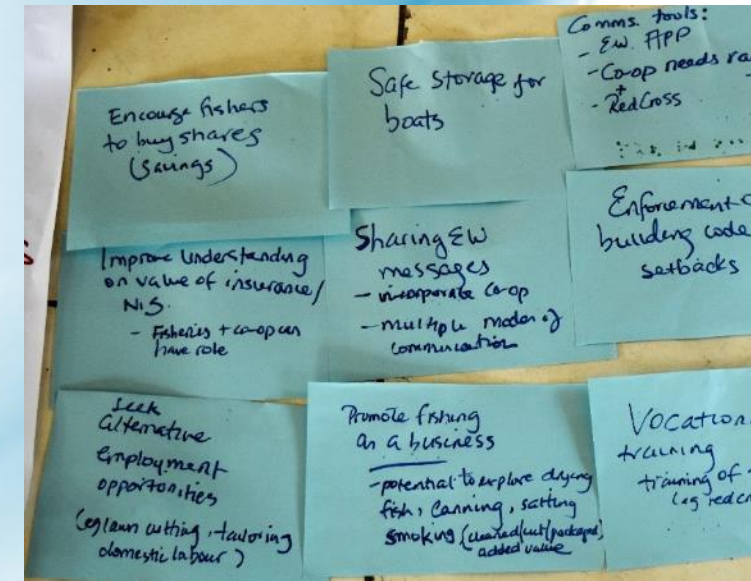 Encourge fishers
to buy shares
(Savings)
Safe Storage for
boats
Comms. tools:
- EW. APP
- Co-op needs ra
+
- RedCross
Improve understanding
on value of insurance/
NIS.
- Fisheries + co-op can
have role
Sharing EW
messages
- incorporate co-op
- multiple modes of
communication
Enforcement o
building code
setbacks
Seek
alternative
employment
opportunities
(eg lawn cutting, tailoring
domestic labour)
Promote fishing
as a business
- potential to explore drying
fish, canning, salting
smoking (cleaned/cut/packaged)
added value
Vocation
training
training of
(eg red cr